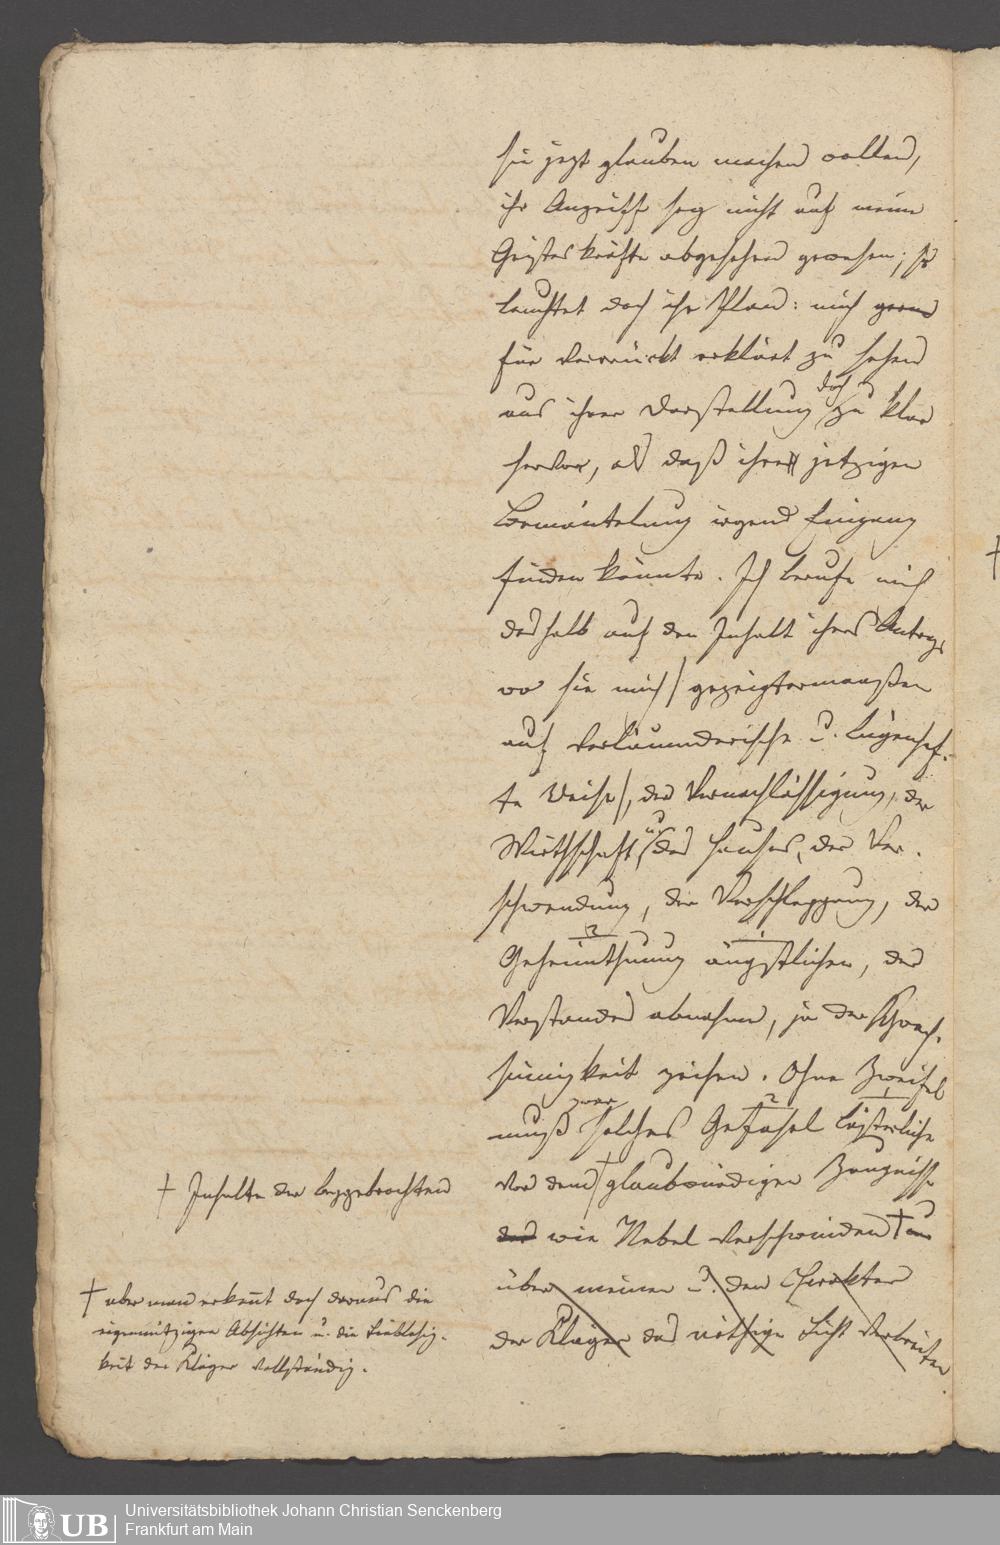 sie jezt glauben machen wollen,
ihr Angriff sey nicht auf meine
Geisteskräfte abgesehen gewesen; so
leuchtet doch ihr Plan: mich gern
für verrückt erklärt zu sehen
aus ihrer Darstellung doch zu klar
hervor, als daß ihre jetzigen
Bemäntelung irgend Eingang
finden könnte. Ich berufe mich
deshalb auf den Inhalt ihres Antrags
wo sie mich gezeigtermaaßen
auf verläumderische u. lügenhaf-
te Weise, der Vernachläßigung, der
Wirthschaft, u. des Hauses, der Ver-
schwendung, der Verschleppung, der
Geheimthuung ängstlichen, der
Verstandes abnahme, ja der Schwach-
sinnigkeit zeihen. Ohne Zweifel
muß zwar solches Gefasel lästerliche
vor dem † glaubwürdigen Zeugnisse
der wie Nebel verschwinden † u
über meinen u. den Charakter
der Kläger das nöthige Licht verbreiten.
† Inhalte der beygebrachten
† aber man erkennt doch daraus die
eigennützigen Absichten u. die Lieblosig-
keit der Kläger vollständig.
UB
Universitätsbibliothek Johann Christian Senckenberg
Frankfurt am Main